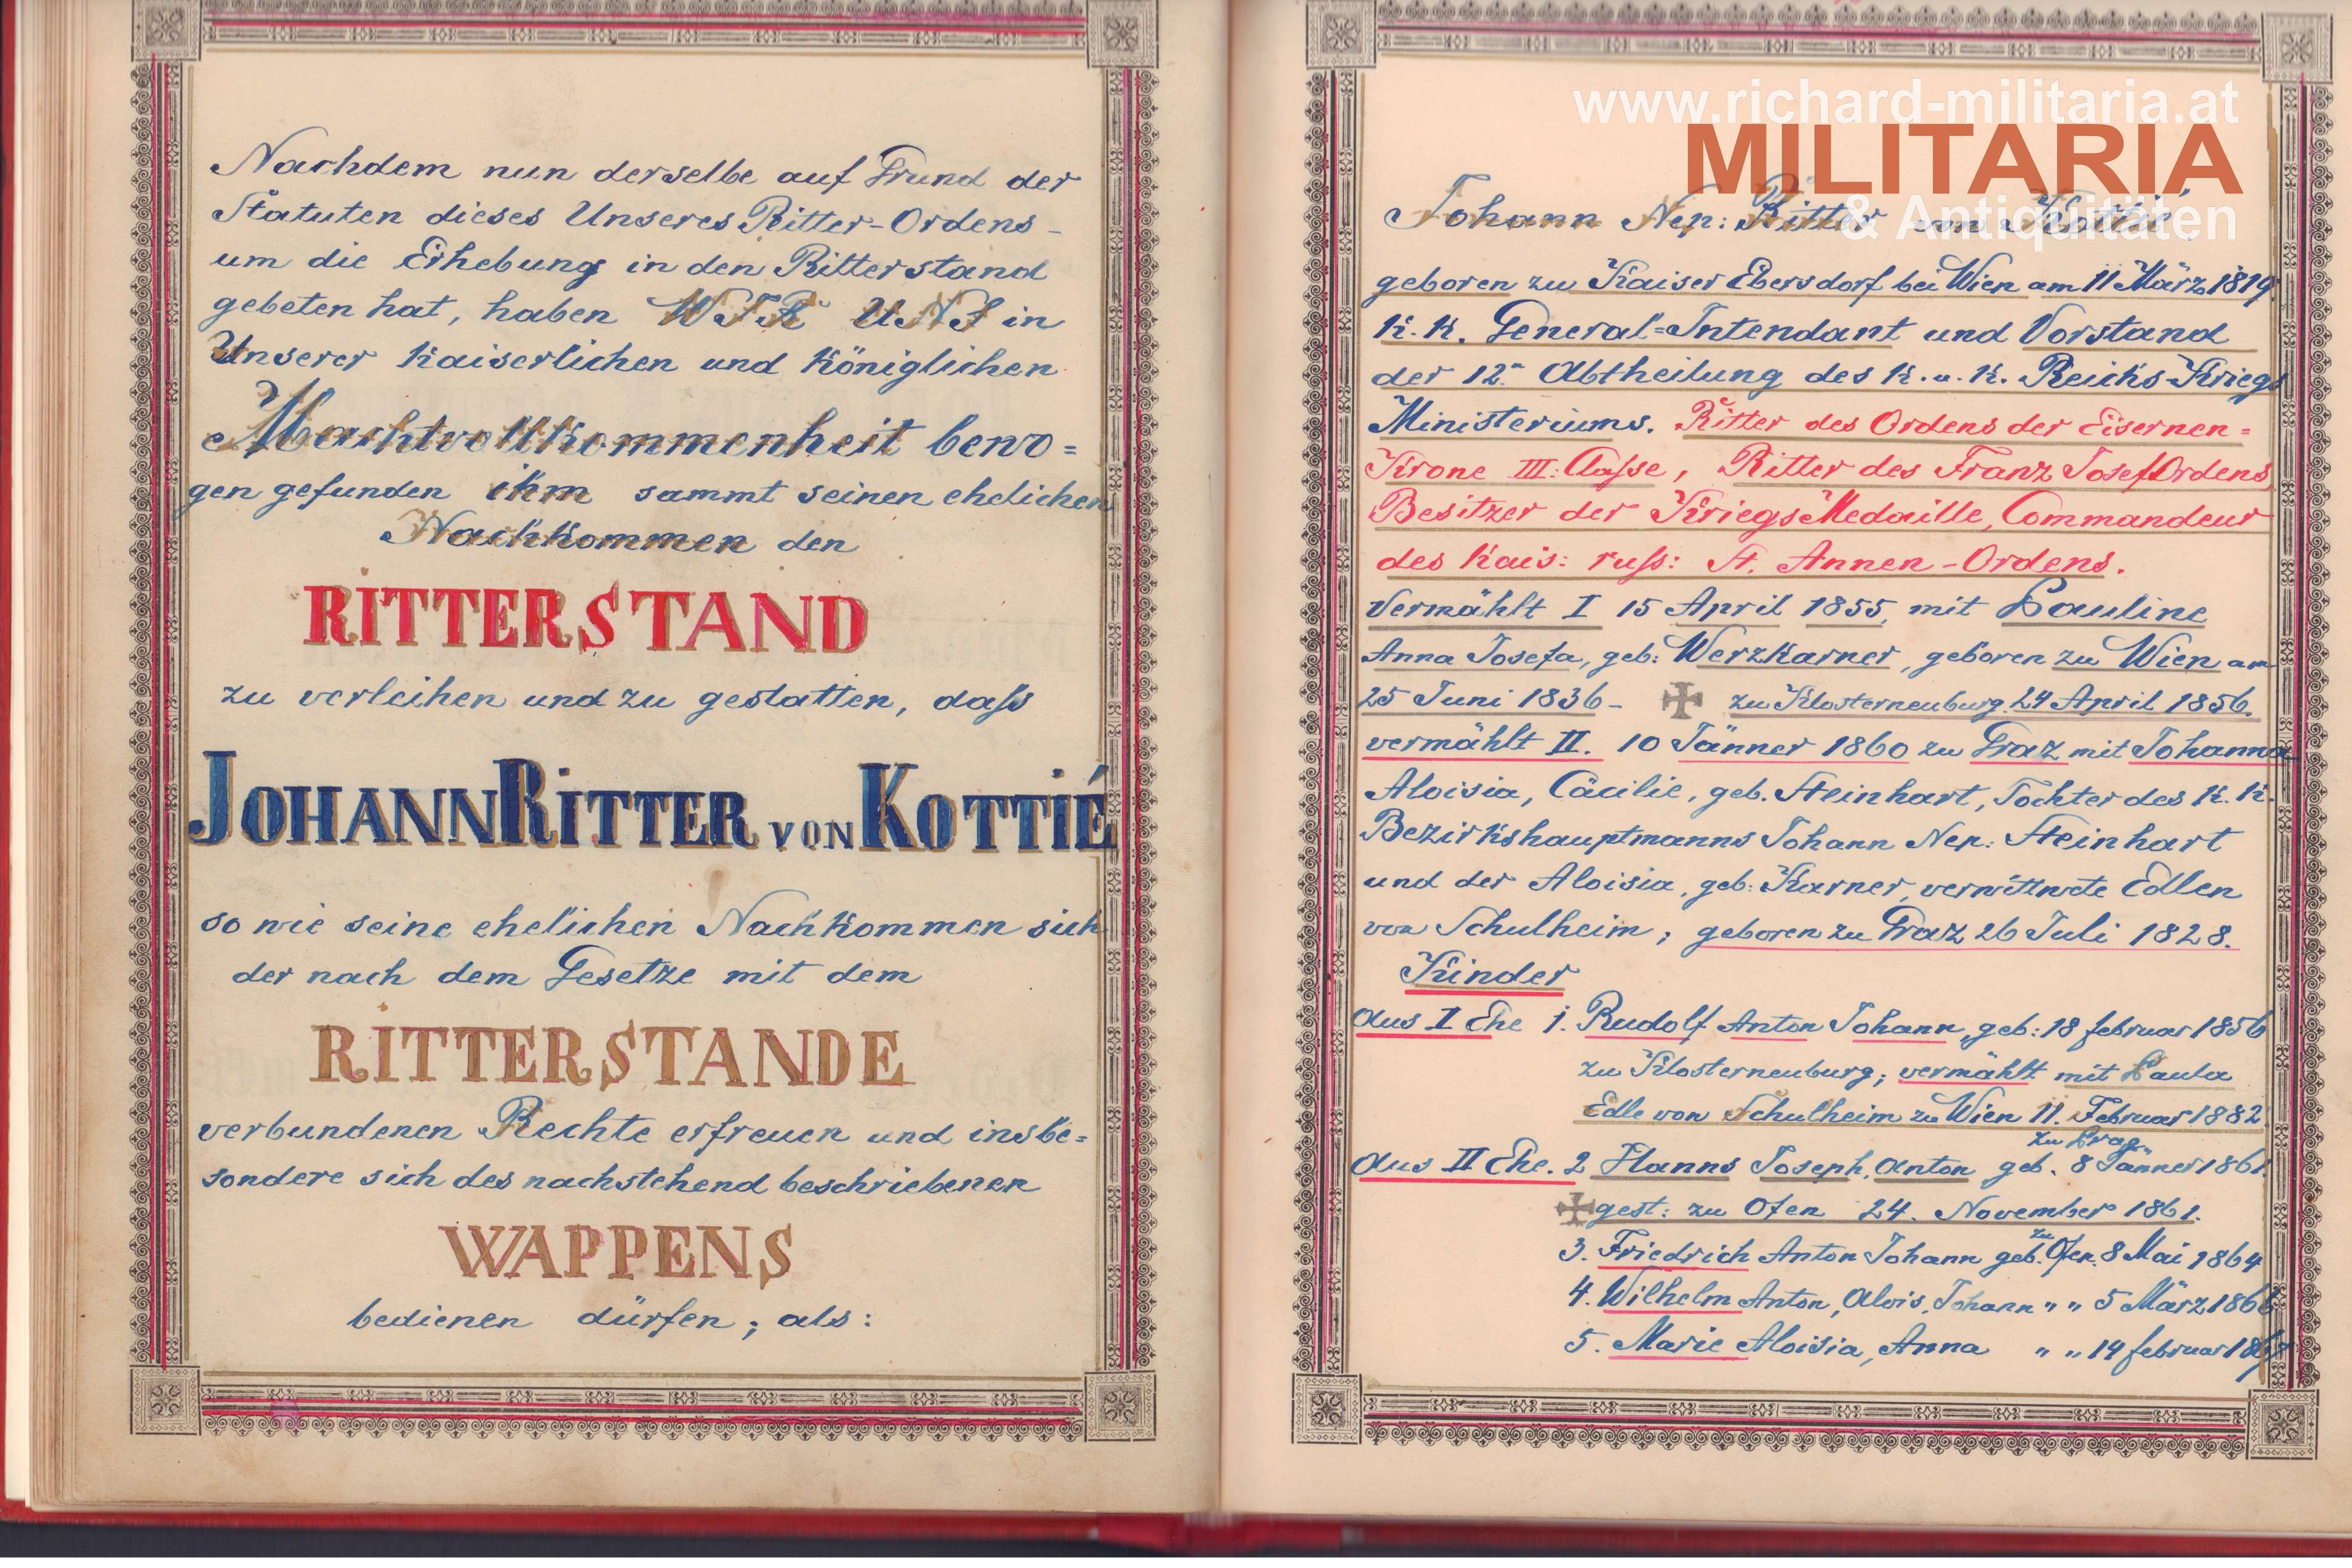 Nachdem nun derselbe auf Grund der
Statuten dieses Unseres Ritter-Ordens-
um die Erhebung in den Ritterstand
gebeten hat, haben WIR UNS in
Unserer Kaiserlichen und Königlichen
Machtvollkommenheit bewo=
gen gefunden ihm sammt seinen ehelichen
Nachkommen den
RITTERSTAND
zu verleihen und zu gestatten, daſs
JOHANN RITTER VON KOTTIÉ
so wie seine ehelichen Nachkommen sich
der nach dem Gesetze mit dem
RITTERSTANDE
verbundenen Rechte erfreuen und insbe=
sondere sich des nachstehend beschriebenen
WAPPENS
bedienen dürfen; als:
www.richard-militaria.at
MILITARIA
& Antiquitäten
Johann Nep: Ritter von Kottié
geboren zu Kaiser Ebersdorf bei Wien am 11 März 1819
K. K. General=Intendant und Vorstand
der 12. Abtheilung des K. u. K. Reichs-Kriegs
Ministeriums. Ritter des Ordens der Eisernen=
Krone III: Claſse, Ritter des Franz Josef Ordens,
Besitzer der KriegsMedaille, Commandeur
des Kais: ruſs: St. Annen-Ordens.
Vermählt I 15 April 1855, mit Pauline
Anna Josefa, geb: Werzkarner, geboren zu Wien am
25 Juni 1836- ✠ zu Klosterneuburg 24 April 1856.
vermählt II. 10 Jänner 1860 zu Graz mit Johanna
Aloisia, Cäcilie, geb. Steinhart, Tochter des K. K.
Bezirkshauptmanns Johann Nep: Steinhart
und der Aloisia, geb: Karner, verwittwete Edlen
von Schulheim; geboren zu Graz 26 Juli 1828.
Kinder
Aus I Ehe 1. Rudolf Anton Johann, geb: 18 februar 1856
zu Klosterneuburg; vermählt mit Paula
Edle von Schulheim zu Wien 11. Februar 1882.
zu Prag
Aus II Ehe. 2 Hanns Joseph, Anton geb. 8 Jänner 1861.
✠ gest: zu Ofen 24. November 1861.
3. Friedrich Anton Johann geb. zu Ofen. 8 Mai 1864
4. Wilhelm Anton, Alois, Johann " " 5 März 1866
5. Marie Aloisia, Anna " " 14 februar